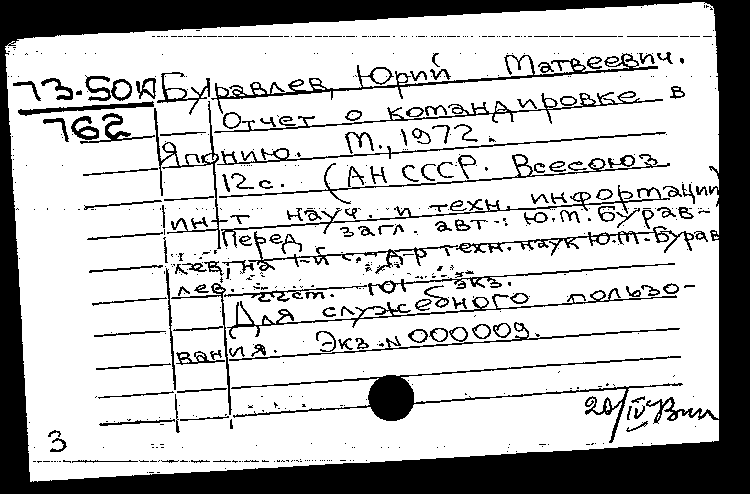 73-50к
762
Буравлев, Юрий Матвеевич.
Отчет о командировке в
Японию. М., 1972.
12 с. (АН СССР. Всесоюз.
ин-т науч. и техн. информации)
Перед загл. авт.: Ю.М. Бурав-
лев, на 1-й с.: д-р техн. наук Ю.М. Бурав
лев. 22 см. 101 экз.
Для служебного пользо-
вания. Экз. N 000009.
3
20/IV